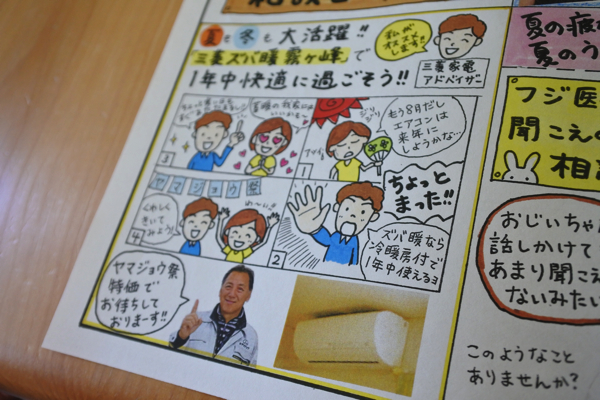 夏も冬も大活躍!!
「三菱ズバ暖霧ヶ峰」で
1年中快適に過ごそう!!
私が
オススメ
します!!
三菱家電
アドバイザー
もう8月だし
エアコンは
来年に
しようかな…
ジリジリ
1
ちょっと
まった!!
ズバ暖なら
冷暖房付で
1年中使えるヨ
2
3
ヤマジョウ祭
くわしく
きいて
みよう!
4
ヤマジョウ祭
特価で
お待ちして
おりまーす!!
夏の疲
夏のう
フジ医
聞こえの
相
おじいちゃ
話しかけて
あまり聞こえ
ないみたい
このようなこと
ありませんか?